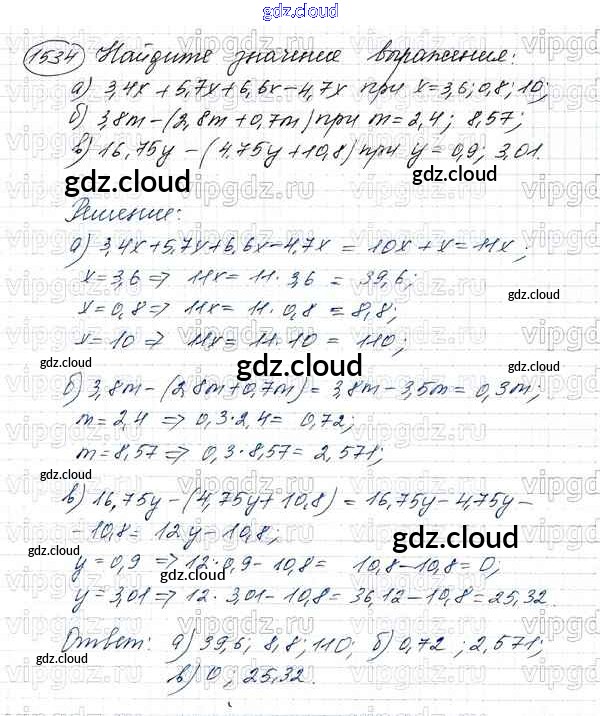 gdz.cloud
1534 Найдите значение выражения:
а) 3,4x+5,7x+6,6x-4,7x при x=3,6; 0,8; 10;
б) 3,8m-(2,8m+0,7m) при m=2,4; 8,57;
в) 16,75y-(4,75y+10,8) при y=0,9; 3,01.
gdz.cloud
gdz.cloud
Решение:
а) 3,4x+5,7x+6,6x-4,7x = 10x+x=11x;
x=3,6 => 11x = 11·3,6 = 39,6;
gdz.cloud
x=0,8=> 11x = 11·0,8 = 8,8;
x=10 => 11x = 11·10 = 110;
gdz.cloud
б) 3,8m-(2,8m+0,7m) = 3,8m-3,5m = 0,3m;
m=2,4 => 0,3·2,4 = 0,72;
m=8,57=> 0,3·8,57= 2,571;
gdz.cloud
gdz.cloud
в) 16,75y-(4,75y+10,8) = 16,75y-4,75y-
-10,8= 12y-10,8;
gdz.cloud
gdz.cloud
y=0,9 =>12·0,9-10,8= 10,8-10,8=0;
gdz.cloud
y=3,01=> 12·3,01-10,8=36,12-10,8=25,32.
Ответ: а) 39,6; 8,8; 110; б) 0,72; 2,571;
gdz.cloud
gdz.cloud
в) 0; 25,32.